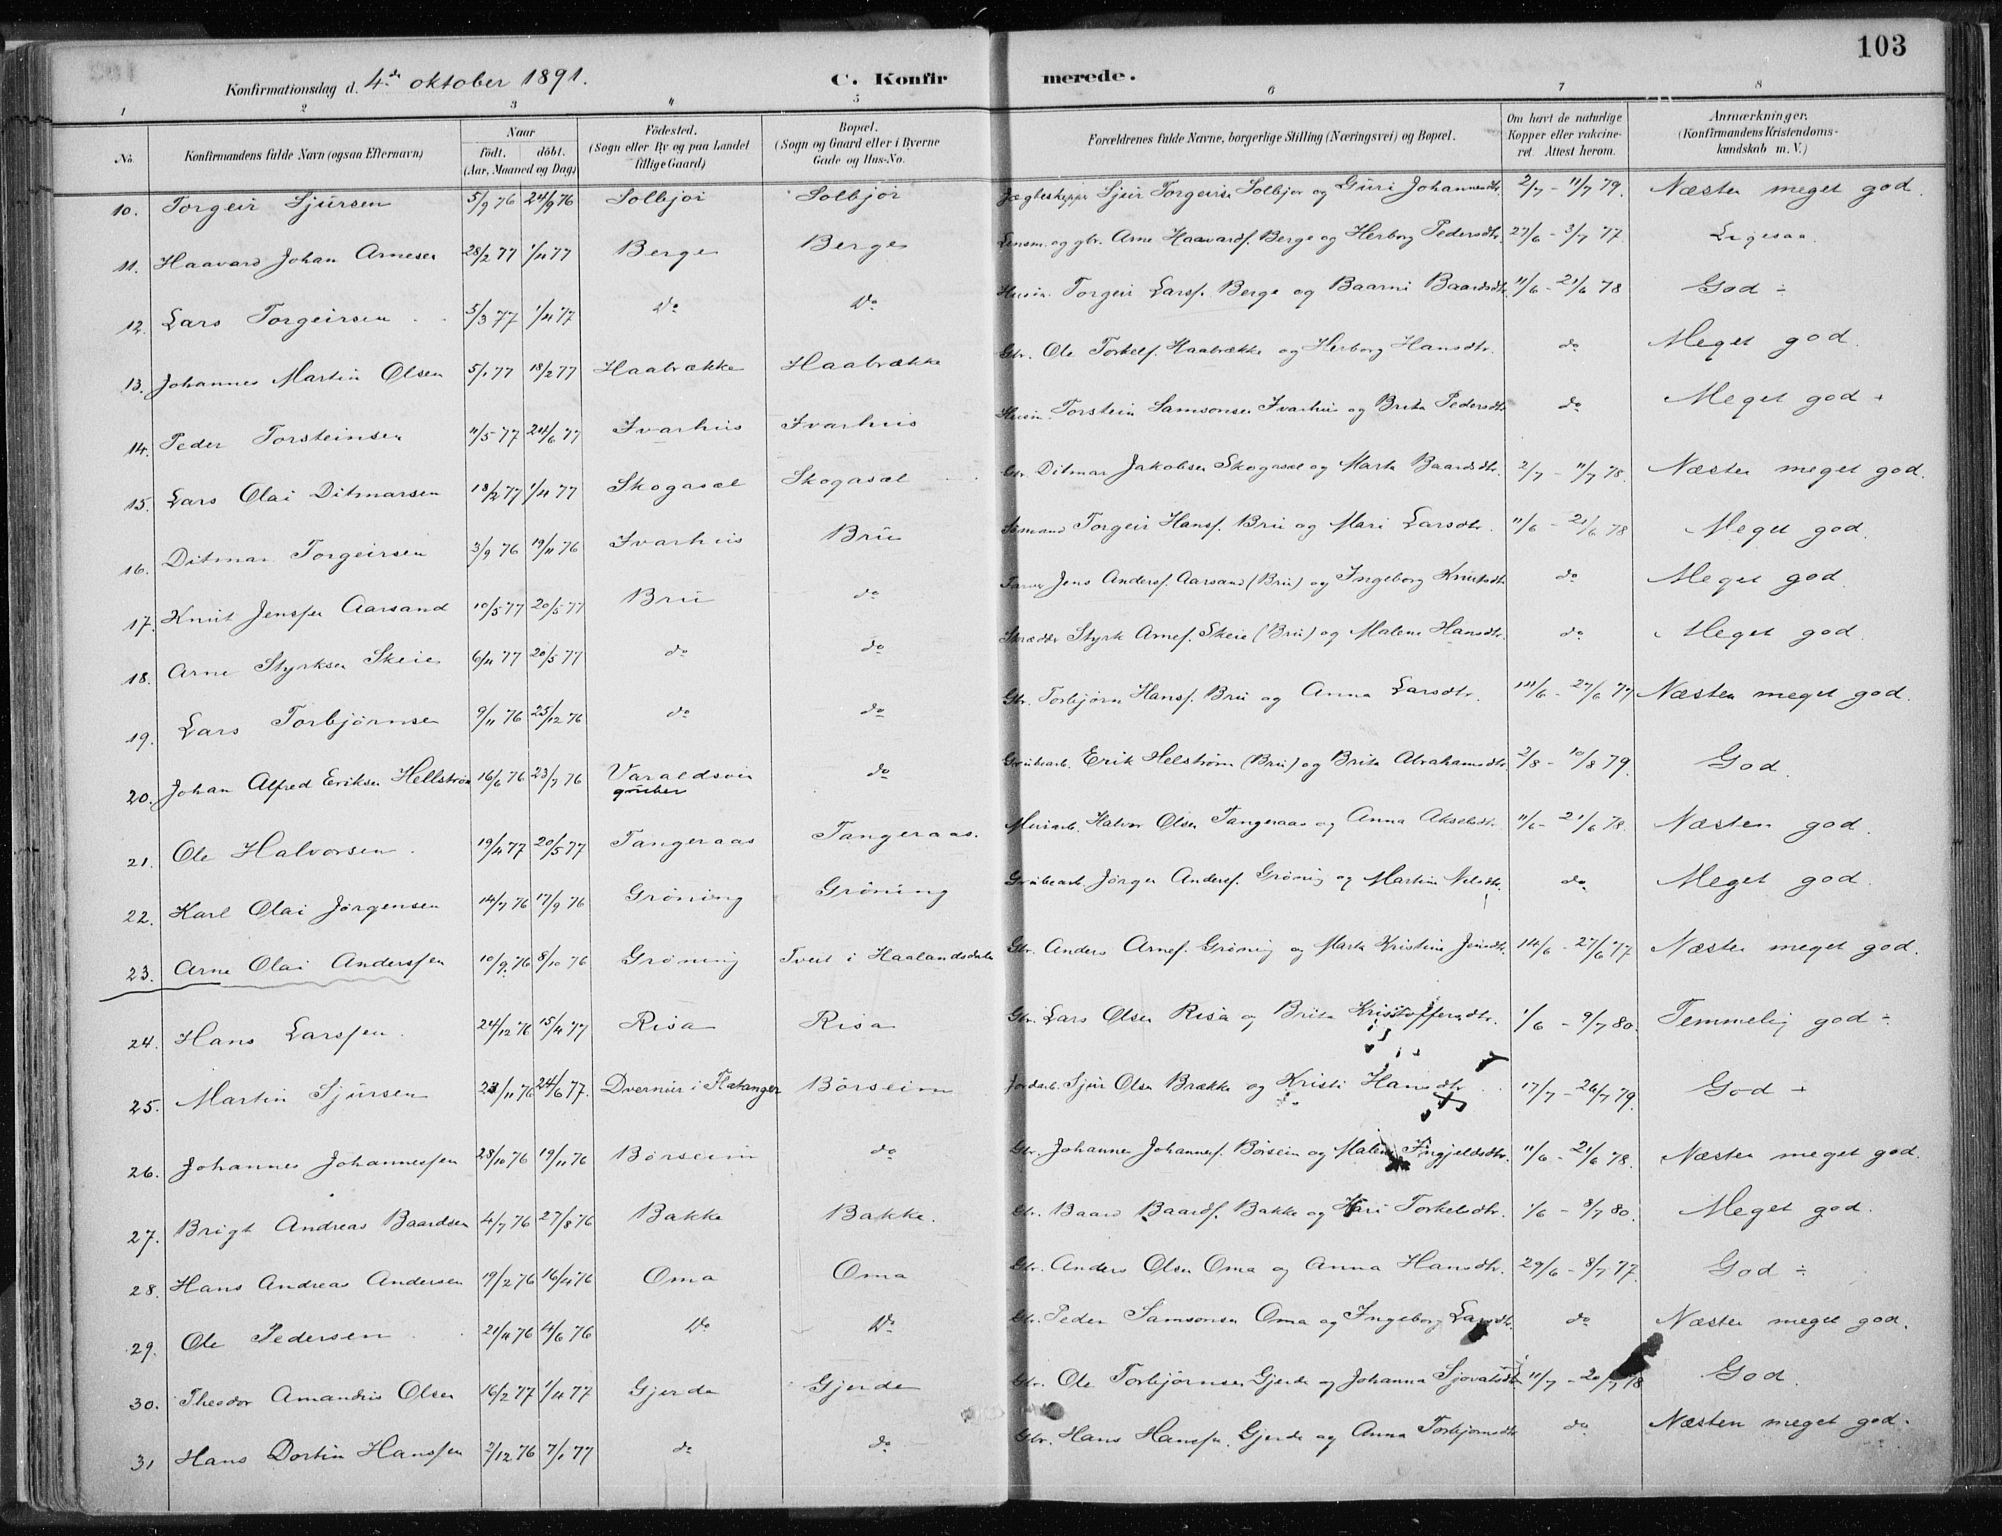 103
Konfirmationsdag d. 4de oktober 1891. C. Konfirmerede.
1 2 3 4 5 6 7 8
No. Konfirmandens fulde Navn (ogsaa Efternavn) Naar födt. döbt. (Aar, Maaned og Dag) Födested. (Sogn eller By og paa Landet tillige Gaard) Bopæl. (Sogn og Gaard eller i Byerne Gade og Hus-No. Forældrenes fulde Navne, borgerlige Stilling (Næringsvei) og Bopæl. Om havt de naturlige Kopper eller vakcineret. Attest herom. Anmærkninger. (Konfirmandens Kristendomskundskab m. V.)
10. Torgeir Sjursen 5/9 76 24/9 76 Solbjør Solbjør Jægteskipper Sjur Torgeirsen Solbjør og Guri Johannesdtr. 2/7 - 11/7 79. Næsten meget god.
11. Haavard Johan Arnesen 28/2 77 1/4 77 Berge Berge Lensm. og gbr. Arne Haavardf. Berge og Herborg Pedersdtr. 27/6 - 3/7 77. Ligesaa.
12. Lars Torgeirsen 5/3 77 1/4 77 Do Do Husm. Torgeir Larsf. Berge og Baarni Baardsdtr. 11/6 - 21/6 78 God ÷
13. Johannes Martin Olsen 5/1 77 18/2 77 Haabrække Haabrække Gbr. Ole Torkelf. Haabrække og Herborg Hansdtr. do Meget god.
14. Peder Torsteinsen 11/5 77 24/6 77 Ivarhus Ivarhus Husm. Torstein Samsonsen Ivarhus og Brita Pedersdtr do Meget god +
15. Lars Olai Ditmarsen 18/2 77 1/4 77 Skogasæl Skogasæl Gbr. Ditmar Jakobsen Skogasæl og Marta Baardsdtr. 2/7 - 11/7 78. Næsten meget god.
16. Ditmar Torgeirsen 3/9 76 19/11 76 Ivarhus Bru Sømand Torgeir Hansf. Bru og Mari Larsdtr. 11/6 - 21/6 78 Meget god.
17. Knut Jensfen Aarsand 10/5 77 20/5 77 Bru do Jens Andersf. Aarsand (Bru) og Ingeborg Knutsdtr. do Meget god.
18. Arne Styrksen Skeie 6/4 77 20/5 77 do do Skrædder Styrk Arnef. Skeie (Bru) og Malene Hansdtr. do Meget god.
19. Lars Torbjørnsen 9/11 76 25/12 76 do do Gbr. Torbjørn Hansf. Bru og Anna Larsdtr. 14/6 - 27/6 77 Næsten meget god.
20. Johan Alfred Eriksen Hellstrøm 16/6 76 23/7 76 Varaldsøen gruber do Grubearb. Erik Helstrøm (Bru) og Brita Abrahamsdtr. 2/8 - 10/8 79. God.
21. Ole Halvorsen 19/4 77 20/5 77 Tangeraas Tangeraas. Murarb. Halvor Olsen Tangeraas og Anna Akselsdtr. 11/6 - 21/6 78. Næsten god.
22. Karl Olai Jørgensen 14/7 76 17/9 76 Grøning Grøning Grubearb. Jørgen Andersf. Grøning og Martini Nilsdtr. do Meget god.
23. Arne Olai Andersfen 10/9 76 8/10 76 Grøning Tveit i Haalandsdalen Gbr. Anders Arnef. Grøning og Marta Kristine Jensdtr. 14/6 - 27/6 77 Næsten meget god.
24. Hans Larsfen 24/12 76 15/4 77 Risa Risa Gbr. Lars Olsen Risa og Brita Kristoffersdtr. 1/6 - 9/7 80. Temmelig god ÷
25. Martin Sjursen 23/11 76 24/6 77. Dvernes i Flatanger Børseim Jordarb. Sjur Olsen Brække og Kristi Hansdtr 17/7 - 26/7 79. God +
26. Johannes Johannesfen 28/10 76 19/11 76 Børseim do Gbr. Johannes Johannesf. Børseim og Malene Ingjeldsdtr. 11/6 - 21/6 78. Næsten meget god.
27. Brigt Andreas Baardsen 4/7 76 27/8 76 Bakke Bakke. Gbr. Baard Baardf. Bakke og Kari Torkelsdtr. 1/6 - 8/7 80. Meget god.
28. Hans Andreas Andersen 19/2 76 16/4 76 Oma Oma Gbr. Anders Olsen Oma og Anna Hansdtr. 29/6 - 8/7 77. God ÷
29. Ole Pedersen 21/4 76 4/6 76 Do Do Gbr. Peder Samsonsen Oma og Ingeborg Larsdtr. do Næsten meget god.
30. Theodor Amandus Olsen 16/2 77 1/4 77 Gjerde Gjerde Gbr. Ole Torbjørnsen Gjerde og Johanna Sjovatsdtr 11/7 - 20/7 78 God.
31 Hans Dortin Hansfen 2/12 76 7/1 77 do do Gbr. Hans Hansfen Gjerde og Anna Torbjørnsdtr do Næsten meget god.